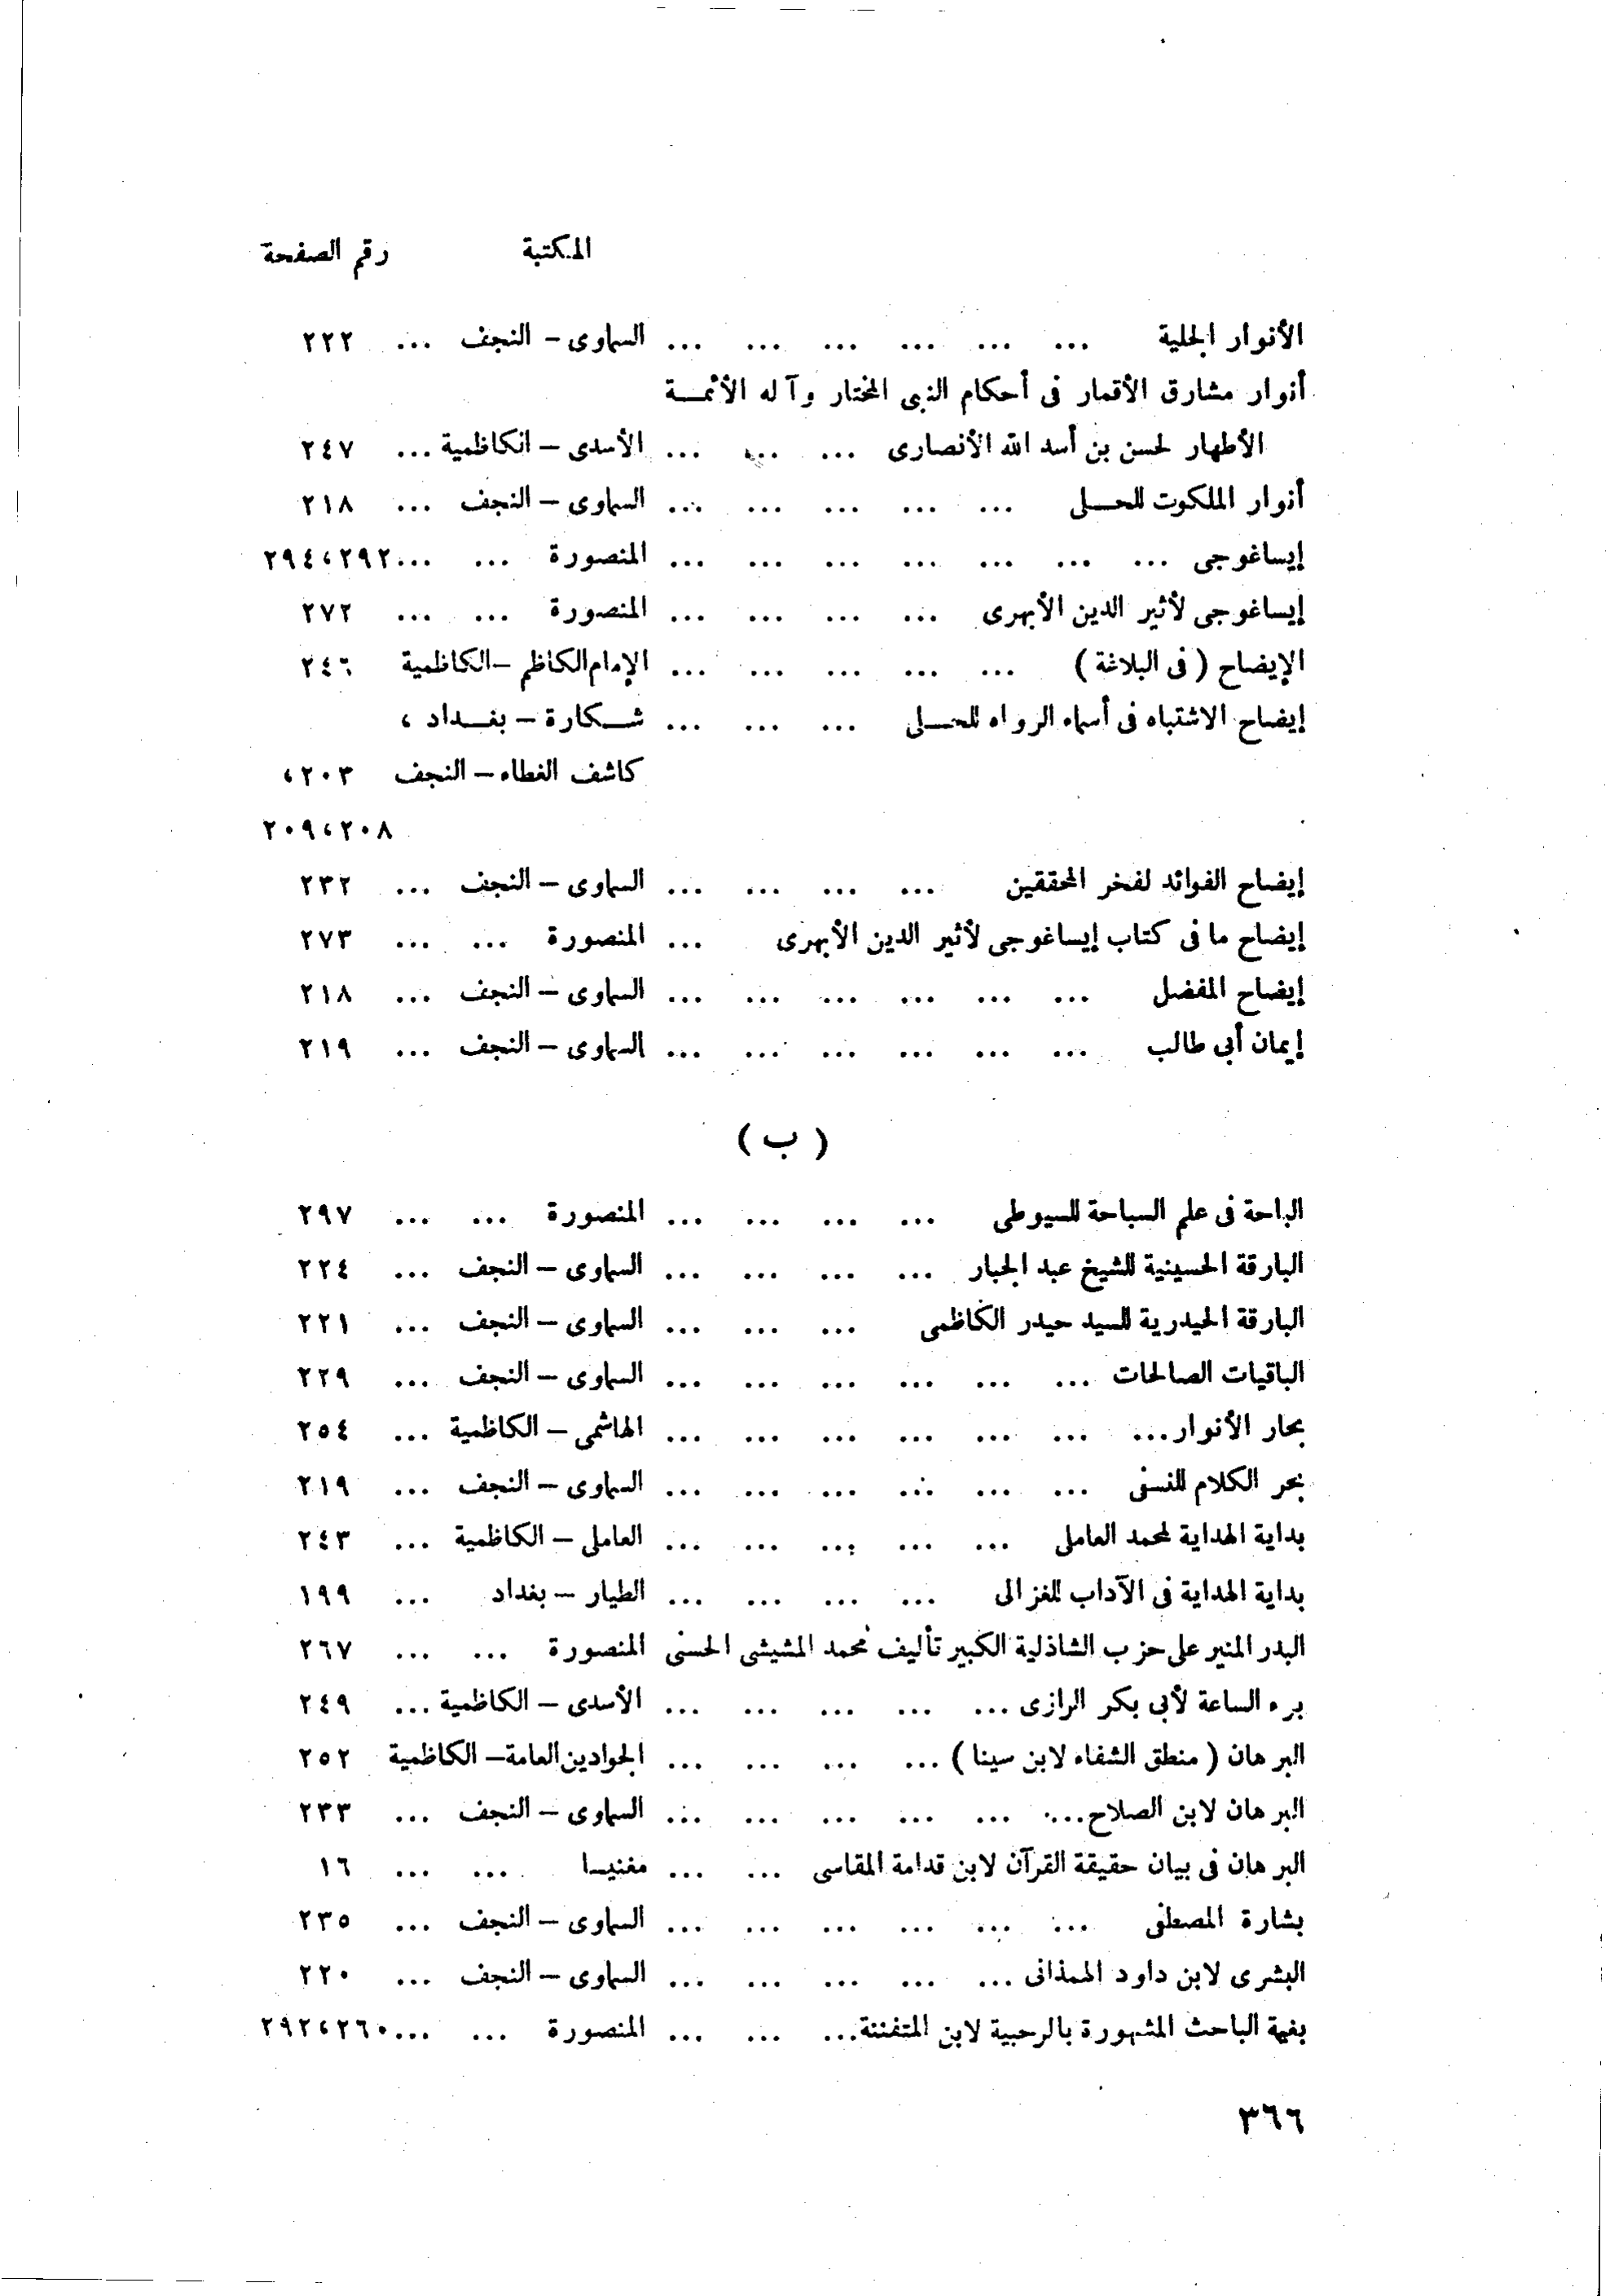 المكتبة رقم الصفحة
الأنوار الجلية ... ... ... ... ... ... السماوى – النجف ... ٢٢٢
أنوار مشارق الأقمار فى أحكام النبى المختار وآله الأئمــة
الأطهار لحسن بن أسد الله الأنصارى ... ... ... الأسدى – الكاظمية ... ٢٤٧
أنوار الملكوت للحـــلى ... ... ... ... ... السماوى – النجف ... ٢١٨
إيساغوجى ... ... ... ... ... ... ... المنصورة ... ... ٢٩٤،٢٩٢
إيساغوجى لأثير الدين الأبهرى ... ... ... ... المنصورة ... ... ٢٧٢
الإيضاح ( فى البلاغة ) ... ... ... ... ... الإمام الكاظم – الكاظمية ٢٤٦
إيضاح الاشتباه فى أسماء الرواه للحـــلى ... ... ... شــكارة – بغــداد ،
كاشف الغطاء – النجف ٢٠٣،
٢٠٩،٢٠٨
إيضاح الفوائد لفخر المحققين ... ... ... ... السماوى – النجف ... ٢٣٢
إيضاح ما فى كتاب إيساغوجى لأثير الدين الأبهرى ... المنصورة ... ... ٢٧٣
إيضاح المفضل ... ... ... ... ... ... السماوى – النجف ... ٢١٨
إيمان أبى طالب ... ... ... ... ... ... السماوى – النجف ... ٢١٩
( ب )
الباحة فى علم السباحة للسيوطى ... ... ... ... المنصورة ... ... ٢٩٧
البارقة الحسينية للشيخ عبد الجبار ... ... ... ... السماوى – النجف ... ٢٢٤
البارقة الحيدرية للسيد حيدر الكاظمى ... ... ... السماوى – النجف ... ٢٢١
الباقيات الصالحات ... ... ... ... ... ... السماوى – النجف ... ٢٢٩
بحار الأنوار ... ... ... ... ... ... ... الهاشمى – الكاظمية ... ٢٥٤
بحر الكلام للنسفى ... ... ... ... ... ... السماوى – النجف ... ٢١٩
بداية الهداية لمحمد العاملى ... ... ... ... ... العاملى – الكاظمية ... ٢٤٣
بداية الهداية فى الآداب للغزالى ... ... ... ... الطيار – بغداد ... ١٩٩
البدر المنير على حزب الشاذلية الكبير تأليف محمد المشيشى الحسنى المنصورة ... ... ٢٦٧
برء الساعة لأبى بكر الرازى ... ... ... ... ... الأسدى – الكاظمية ... ٢٤٩
البرهان ( منطق الشفاء لابن سينا ) ... ... ... ... الجوادين العامة – الكاظمية ٢٥٢
البرهان لابن الصلاح ... ... ... ... ... ... السماوى – النجف ... ٢٣٣
البرهان فى بيان حقيقة القرآن لابن قدامة المقاسى ... ... مغنيـا ... ... ١٦
بشارة المصطفى ... ... ... ... ... ... السماوى – النجف ... ٢٣٥
البشرى لابن داود الهمذانى ... ... ... ... ... السماوى – النجف ... ٢٢٠
بغية الباحث المشهورة بالرحبية لابن المتفننة ... ... ... المنصورة ... ... ٢٩٢،٢٦٠
٣٦٦